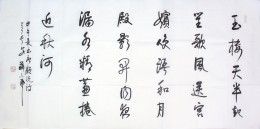 玉樓天半起
笙歌風送宮
嬪笑語和月
殿影開聞夜
漏水精簾捲
近秋河